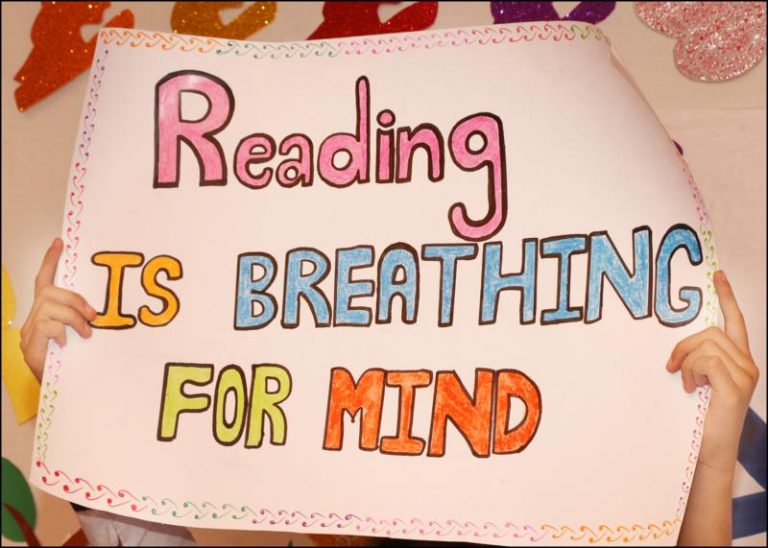 Reading
IS BREATHING
FOR MIND